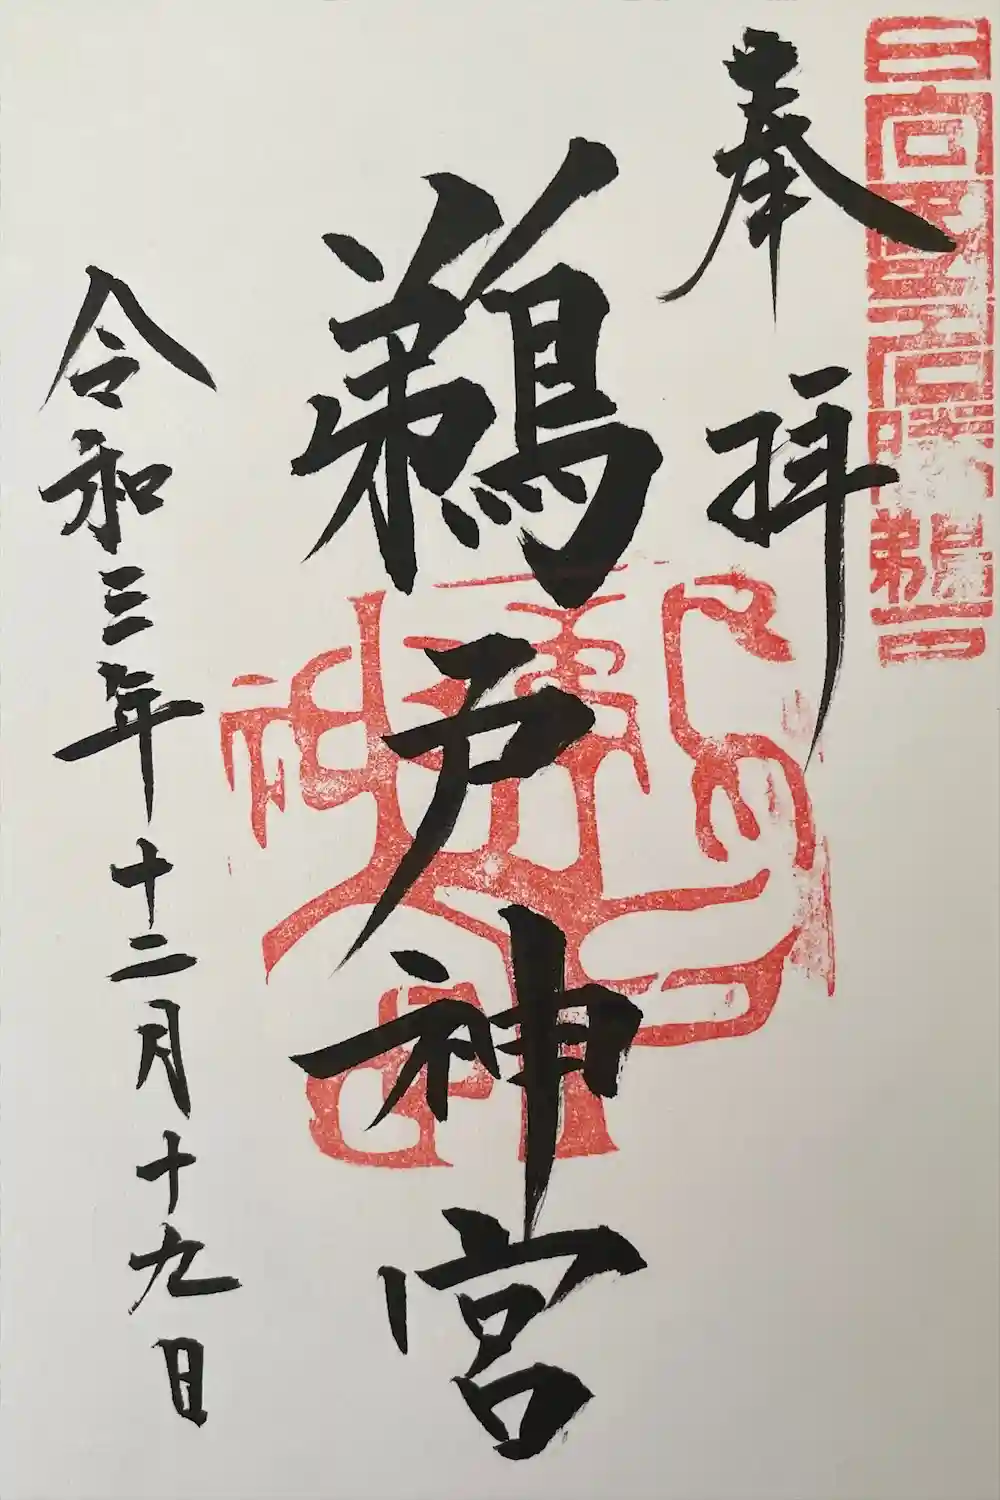 奉拝
鵜戸神宮
令和三年十二月十九日